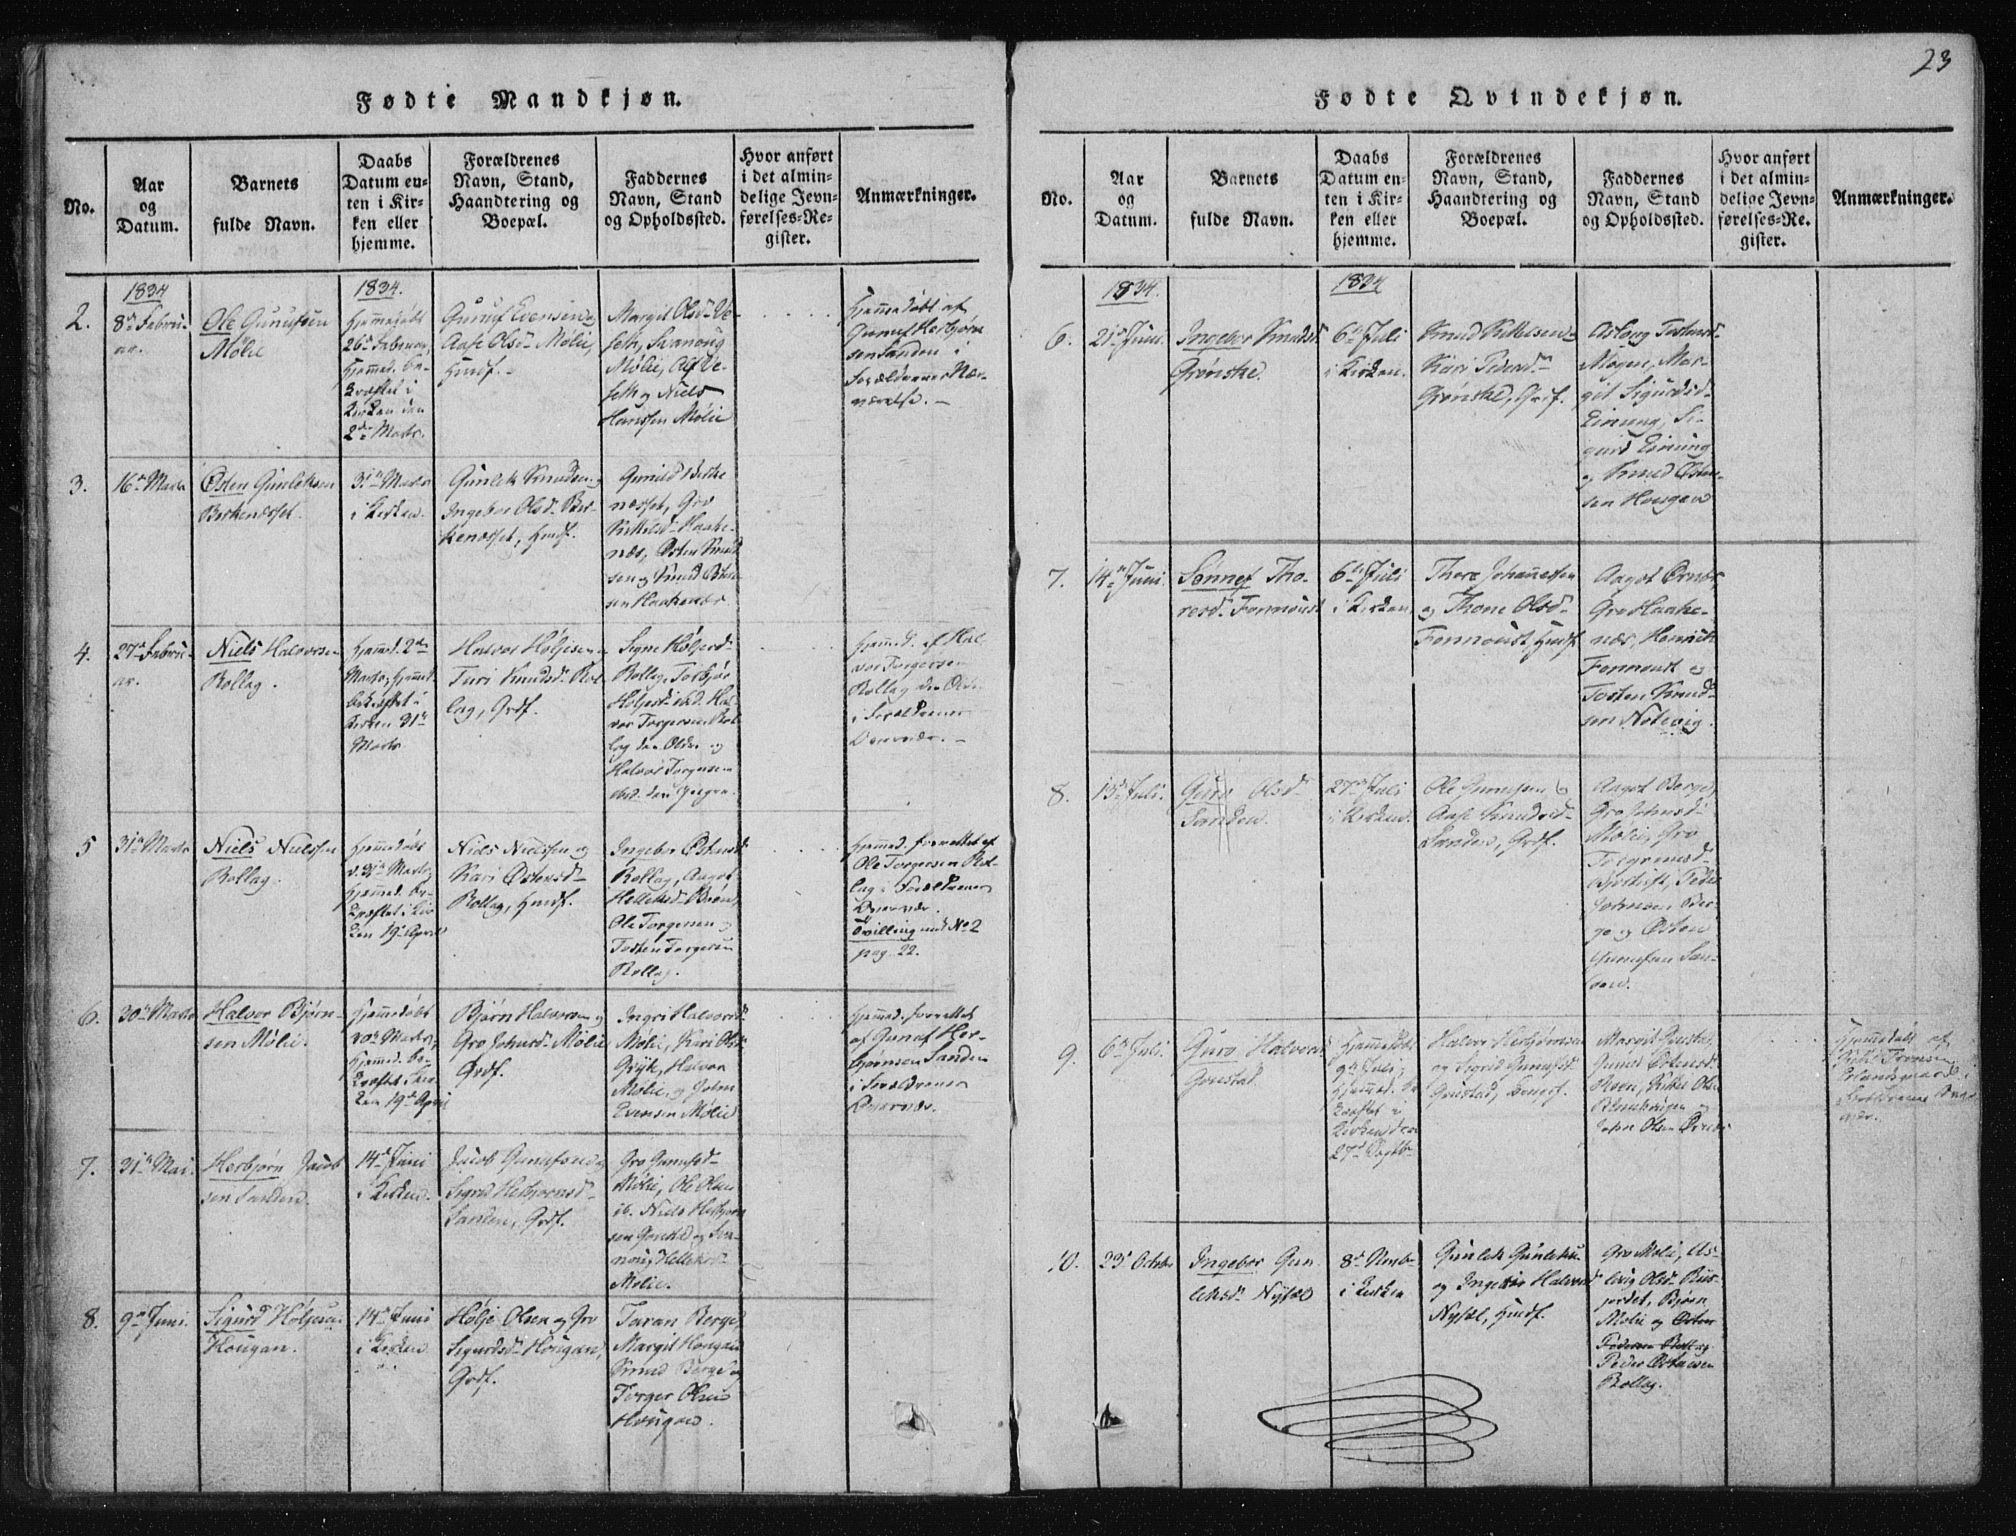 23
Fødte Mandkjøn.
No.
Aar
og
Datum.
Barnets
fulde Navn.
Daabs
Datum en-
ten i Kir-
ken eller
hjemme.
Forældrenes
Navn, Stand,
Haandtering og
Boepæl.
Faddernes
Navn, Stand
og Opholdssted.
Hvor anført
i det almin-
delige Jevn-
førelses-Re-
gister.
Anmærkninger.
1834
1834.
2.
8de Febru-
ar.
Ole Gunufsen
Mølie
Hjemmedøbt
26de Februar,
Hjemmed. be-
kræftet i
Kirken den
2den Marts.
Gunuf Evensen og
Aase Olsd. Mølie,
Husf.
Margit Olsd. Ve-
seth, Svanoug
Mølie, Ole Ve-
seth og Niels
Hansen Mølie
Hjemmedøbt af
Gunuf Herbjørn-
sen Sanden i
Forældrenes Nær-
værelse.
3.
16de Marts
Østen Gunleksen
Berkenæsset.
31te Marts
i Kirken.
Gunlek Knudsen og
Ingebor Olsd. Ber-
kenæsset, Husf.
Gunild Berke
næsset, Gro
Kittilsd. Haake-
næs, Østen Knud-
sen og Knud Østen-
sen Haakenæs
4.
27de Febru-
ar.
Niels Halvorsen
Rollag.
Hjemmed. 2den
Marts, Hjemmed.
bekræftet i
Kirken 31te
Marts
Halvor Høljesen
Turi Knudsd. Rol-
lag, Grdf.
Signe Høljesd.
Rollag, Torbjør
Høljesd. ibid. Hal-
vor Torgersen Rol-
lag den Ældre og
Halvor Torgersen
ibid. den yngre.
Hjemmed. af Hal-
vor Torgersen
Rollag den Ældre
i Forældrenes
Nærvær.
5
31te Marts
Niels Nielssen
Rollag.
Hjemmedøbt
d. 31te Marts,
Hjemmed. be-
kræftet i Kir-
ken 19de April
Niels Nielssen og
Kari Østensd.
Rollag, Husf.
Ingebor Østensd.
Rollag, Aagot
Helleksd. Bøen,
Ole Torgersen og
Tosten Torgersen
Rollag.
Hjemmed. forrettet af
Ole Torgersen Rol-
lag i Forældrenes
Nærvær.
Tvilling med No 2
pag. 22.
6.
30te Marts
Halvor Bjørn-
sen Mølie.
Hjemmedøbt
30te Marts,
Hjemmed. be-
kræftet i Kir-
ken 19de April
Bjørn Halvorsen og
Gro Johnsd. Mølie
Grdf.
Ingri Halvorsd.
Mølie, Kari Olsd.
Halvor
Mølie, og John
Evensen Mølie
Hjemmed. forrettet
af Gunuf Her-
bjørnsen Sanden
i Forældrenes
Nærvær.
7.
31te Mai.
Herbjørn Jacob
sen Sanden.
14de Juni
i Kirken.
Jacob Gunufsen og
Sigrid Herbjørnsd.
Sanden, Grdf.
Gro Gunufsd.
Mølie, Ole Olsen
ib. Niels Herbjørn
sen Gonstad og Sva-
noug Helleksd.
Mølie.
8.
9de Juni.
Sigurd Høljesen
Hougan.
14de Juni
i Kirken
Hølje Olsen og Gro
Sigurdsd. Hougan,
Grdf.
Taran Berge,
Margit Hougan
Knud Berge og
Torger Olsen
Hougan.
Fødte Qvindekjøn.
No.
Aar
og
Datum.
Barnets
fulde Navn.
Daabs
Datum en-
ten i Kir-
ken eller
hjemme.
Forældrenes
Navn, Stand,
Haandtering og
Boepæl.
Faddernes
Navn, Stand
og Opholdssted.
Hvor anført
i det almin-
delige Jevn-
førelses-Re-
gister.
Anmærkninger.
1834.
1834
6.
21de Juni.
Ingebor Knudsd.
Grønske.
6te Juli
i Kirken.
Knud Kittilsen og
Kari Pedersd.
Grønske, Grdf.
Asloug Tostensd.
Mogen, Mar-
git Sigurdsd.
Einung, Si-
gurd Einung
og Knud Østen-
sen Hougan
7.
14de Juni
Sønnef Tho-
resd. Fonnoust
6te Juli
i Kirken.
Thore Johannessen
og Thone Olsd.
Fonnoust, Husf.
Aagot Ørnes,
Gro Haake-
næs, Henrik
Fonnoust og
Tosten Knud-
sen Notevig.
8.
13de Juli.
Guro Olsd.
Sanden.
27de Juli
i Kirken.
Ole Gunufsen og
Aase Knudsd.
Sanden, Grdf.
Aagot Berge,
Gro Johnsd.
Mølie, Gro
Peder
Johnsen Ber-
ge og Østen
Gunufsen San-
den.
9.
6te Juli.
Guro Halvorsd.
Gonstad.
Hjemmedøbt
9de Juli;
Hjemmed. be-
kræftet i
Kirken den
27de Septbr.
Halvor Herbjørnsen
og Sigrid Gunufsd.
Gonstad,
Margit Gonstad,
Gunild Østensd.
Kittil Olsen
og
John Olsen
Hjemmedøbt af
i
Forældrenes Nær-
vær.
10.
23de Octobr
Ingebor Gun
leksd. Nysæl
8de Novbr
i Kirken
Gunlek Gunleksen
og Ingebor Halvorsd.
Nysæl, Husf.
Gro Mølie, As-
laug Olsd.
Bjørn
Mølie og Østen
Pedersen Rollag
Peder Østensen
Rollag.